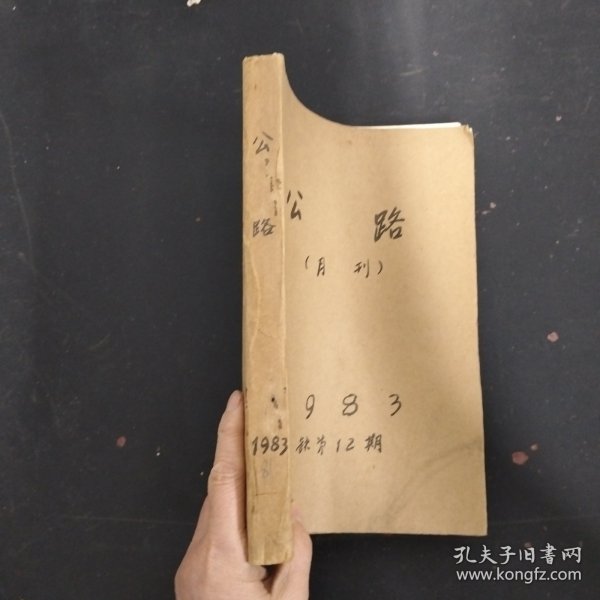 公
路
公 路
(月 刊)
983
1983 缺第12期
孔夫子旧書网
www.kongfz.com